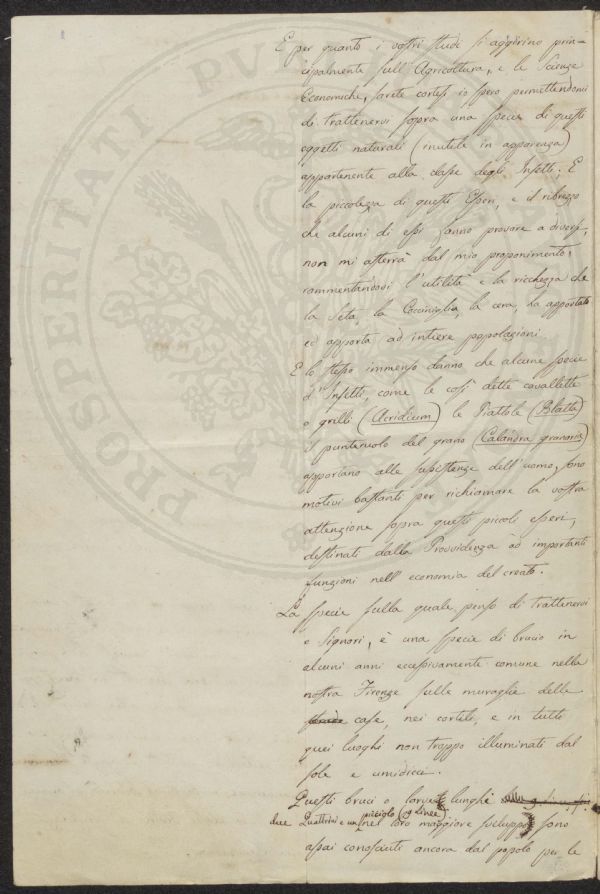 E per quanto i vostri studi si aggirino prin=
cipalmente sull'Agricoltura, e le Scienze
Economiche, sarete cortesi io spero permettendomi
di trattenervi sopra una specie di questi
oggetti naturali (inutile in apparenza)
appartenente alla classe degli Insetti. E
la piccolezza di questi Esseri, e il ribrezzo
che alcuni di essi fanno provare a diversi,
non mi asterrà dal mio proponimento,
rammentandovi l'utilità e la ricchezza che
la Seta, la Cocciniglia, la cera, ha apportato
ed apporta ad intiere popolazioni
E lo stesso immenso danno che alcune specie
d'Insetti come le così dette cavallette
o grilli (Acridium) le Piattole (Blatta)
il punteruolo del grano (Calandra granaria)
apportano alle sussistenze dell'uomo, sono
motivi bastanti per richiamare la vostra
attenzione sopra questi piccoli esseri,
destinati dalla Provvidenza ad importanti
funzioni nell'economia del creato.
La specie sulla quale penso di trattenervi
o Signori, è una specie di brucio in
alcuni anni eccessivamente comune nella
nostra Firenze sulle muraglie delle
case, nei cortili, e in tutti
quei luoghi non troppo illuminati dal
sole e umidicci.
Questi bruci o larve lunghi
due Quattrini e un picciolo (9 linee) nel loro maggiore sviluppo sono
assai conosciuti ancora dal popolo per le
PROSPERITATI PUBLICAE